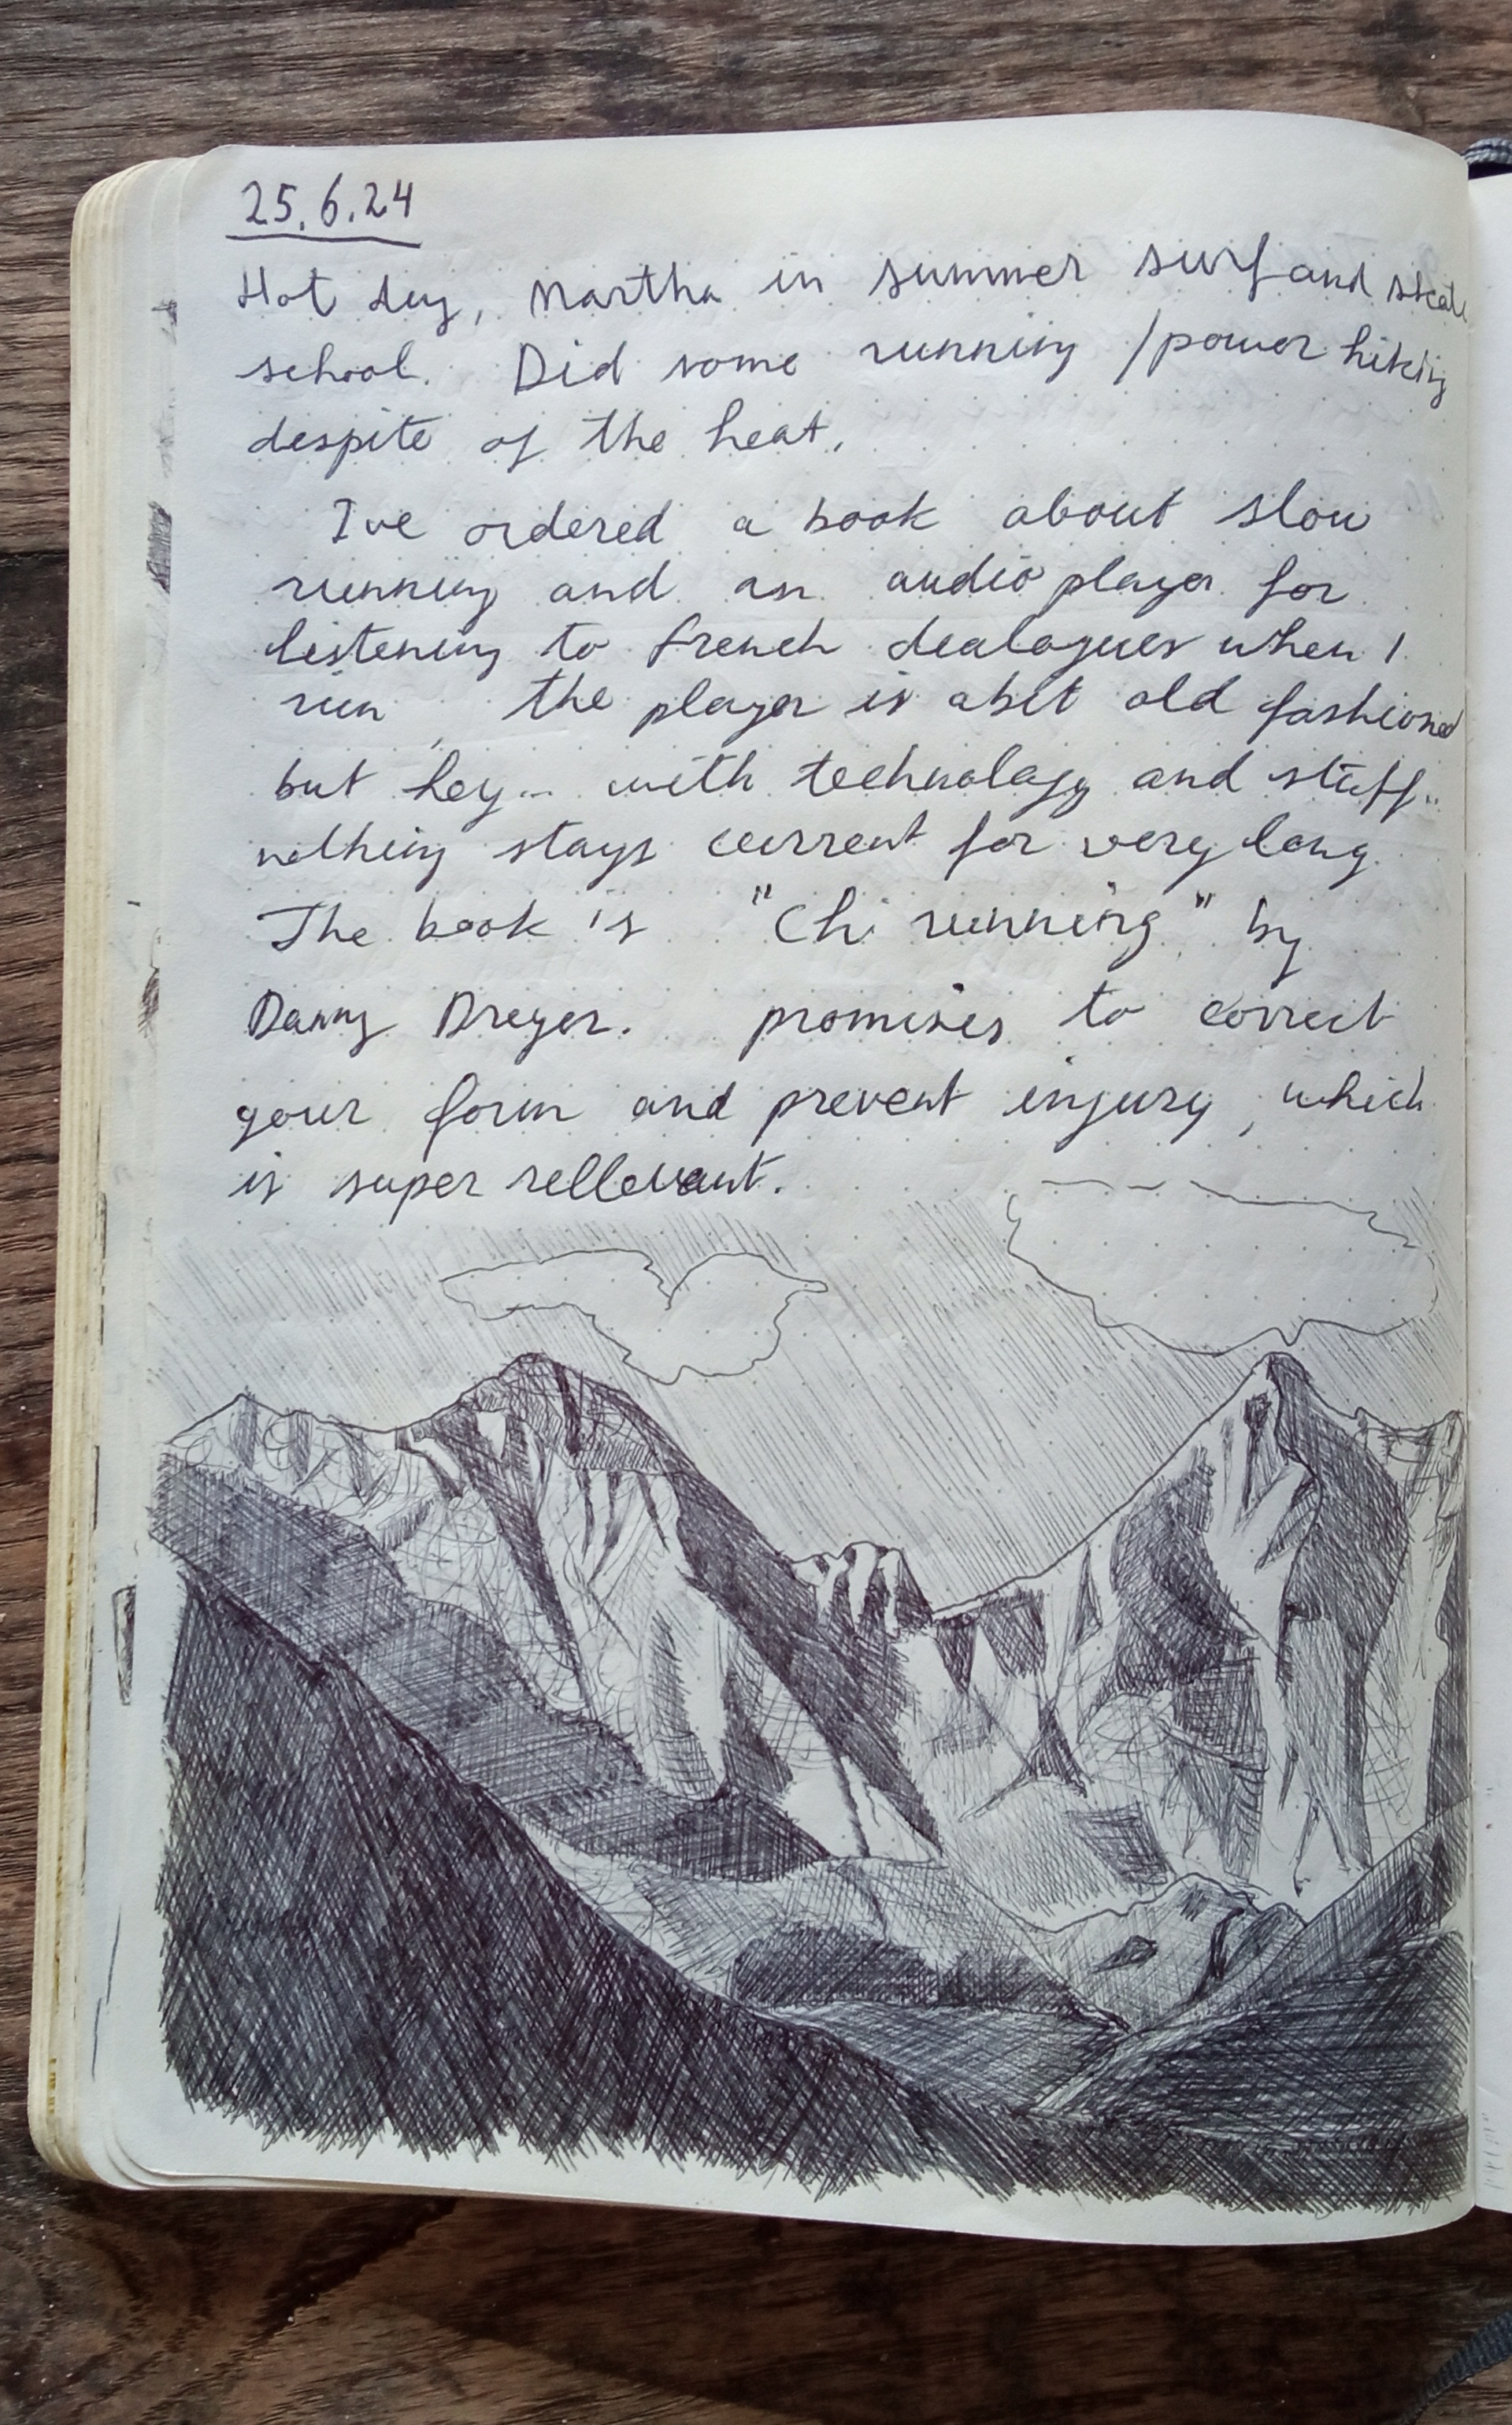 25.6.24
Hot day, Martha in summer surf and skate
school. Did some running / power hiking
despite of the heat.
I've ordered a book about slow
running and an audio player for
listening to french dealogues when I
run, the player is abit old fashioned
but hey... with technology and stuff..
nothing stays current for very long
The book is "Chi running" by
Danny Dreyer. promises to correct
your form and prevent injury, which
is super rellevant.